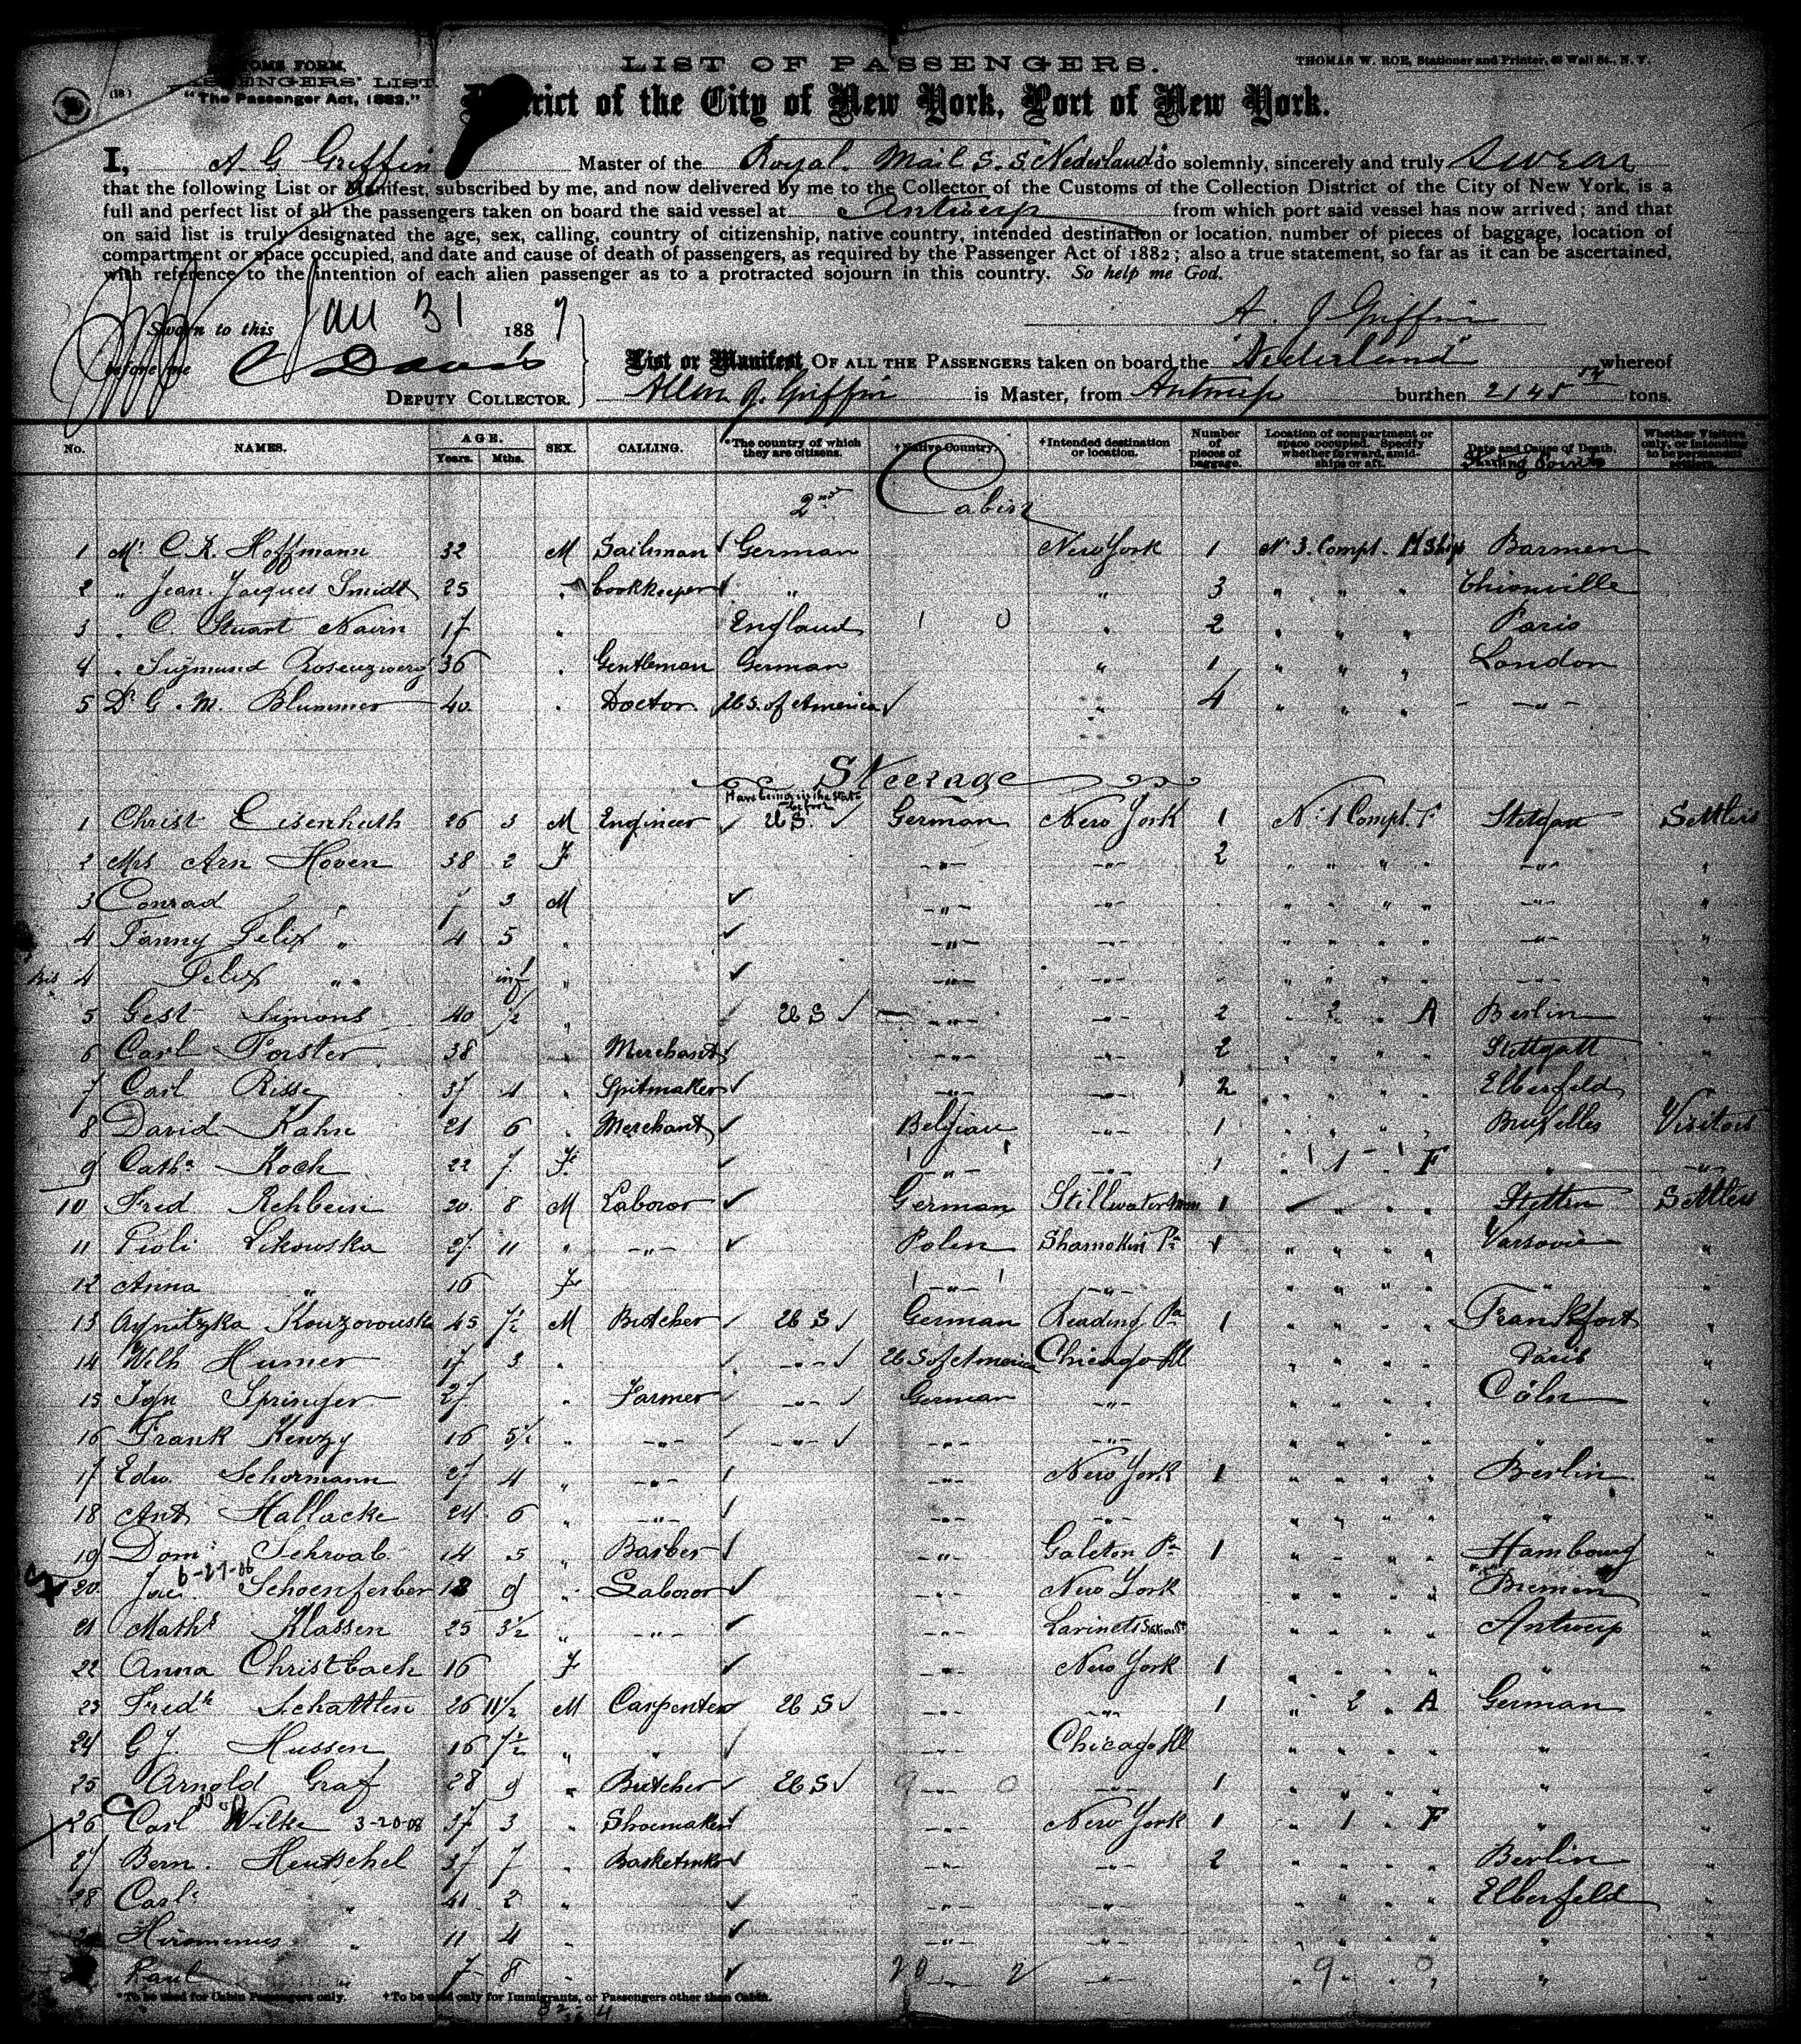 CUSTOMS FORM.
PASSENGERS' LIST
(18)
"The Passenger Act, 1882."
LIST OF PASSENGERS.
THOMAS W. ROE, Stationer and Printer, Wall St., N. Y.
District of the City of New York, Port of New York.
I, A. G Griffin Master of the Royal Mail S. S "Nederland" do solemnly, sincerely and truly swear
that the following List or Manifest, subscribed by me, and now delivered by me to the Collector of the Customs of the Collection District of the City of New York, is a
full and perfect list of all the passengers taken on board the said vessel at Antwerp from which port said vessel has now arrived; and that
on said list is truly designated the age, sex, calling, country of citizenship, native country, intended destination or location, number of pieces of baggage, location of
compartment or space occupied, and date and cause of death of passengers, as required by the Passenger Act of 1882; also a true statement, so far as it can be ascertained,
with reference to the intention of each alien passenger as to a protracted sojourn in this country. So help me God.
A. J Griffin
Sworn to this Jan 31 1887
before me C Davis
DEPUTY COLLECTOR.
List or Manifest OF ALL THE PASSENGERS taken on board the "Nederland" whereof
Allen J. Griffin is Master, from Antwerp burthen 2145 tons.
No. NAMES. AGE. Years. Mths. SEX. CALLING. *The country of which they are citizens. †Native Country. †Intended destination or location. Number of pieces of baggage. Location of compartment or space occupied. Specify whether forward, amidships or aft. Date and Cause of Death. Starting Points Whether Visitors only, or intending to be permanent settlers.
2nd Cabin
1 Mr C. R. Hoffmann 32 M Sailsman German New York 1 No 3. Compt. M Ships Barmen
2 " Jean Jacques Smidt 25 " bookkeeper " " 3 " " " Thionville
3 " C. Stuart Nairn 17 " England " 2 " " " Paris
4 " Sigmund Rosenzweig 36 " Gentleman German " 1 " " " London
5 Dr G. M. Blummer 40 " Doctor U.S. of America " 4 " " " "
Steerage
Have being in the States before
1 Christ Eisenhuth 26 3 M Engineer U S. German New York 1 No 1 Compt. F Stutgart Settlers
2 Mrs Arn Hoven 38 2 F " " 2 " " " " " "
3 Conrad " 7 3 M " " " " " " " "
4 Fanny Felix " 4 5 " " " " " " " " "
Bis 4 Felix " inf " " " " " " " "
5 Gest Simons 40 1/2 " U S " " 2 " 2 " A Berlin "
6 Carl Forster 38 " Merchant " " 2 " " " " Stettgatt "
7 Carl Risse 37 4 " Spitmaker " " 2 " " " " Elberfeld "
8 David Kahn 21 6 " Merchant Belgian " 1 " " " " Bruxelles Visitors
9 Catha Koch 22 7 F " " 1 " 1 " F " "
10 Fred Rehbein 20 8 M Laboror German Stillwater Minn 1 " " " Stettin Settlers
11 Pioli Likowska 27 11 " " Polen Shamokin Pa 1 " " " " Varsovie "
12 Anna " 16 F " " " " " " " "
13 Agnitzka Kouzovouska 45 7 1/2 M Butcher U S German Reading Pa 1 " " " " Frankfort "
14 Wilh Humer 17 3 " " U S of America Chicago Ill " " " " Paris "
15 Ign Springer 27 " Farmer " German " " " " " Cöln "
16 Frank Kenzy 16 5 1/2 " " " " " " " " " " "
17 Edw. Schormann 27 4 " " " New York 1 " " " " Berlin "
18 Ant Hallacke 24 6 " " " " " " " " " "
19 Dom. Schwab 14 5 " Barber " Galeton Pa 1 " " " " Hambourg "
6-27-06
20 Jac. Schoenferber 18 9 " Laboror " New York " " " " Bremen "
21 Maths Klassen 25 3 1/2 " " " " " " " Antwerp "
22 Anna Christbach 16 F " New York 1 " " " " " "
23 Fredk Schattlen 26 11 1/2 M Carpenter U S " " 1 " 2 " A German "
24 G J. Hussen 16 7 1/2 " " " Chicago Ill " " " " " "
25 Arnold Graf 28 9 " Butcher U S " " 1 " " " " " "
26 Carl Wilke 3-20-08 37 3 " Shoemaker " New York 1 " 1 " F " "
27 Bern. Heutschel 37 7 " Basketmkr " " 2 " " " " Berlin "
28 Carl " 41 2 " " " " " " " Elberfeld "
Hiromenus " 11 4 " " " " " " " " "
Paul " 7 8 " " " " " "
*To be used for Cabin Passengers only. †To be used only for Immigrants, or Passengers other than Cabin.